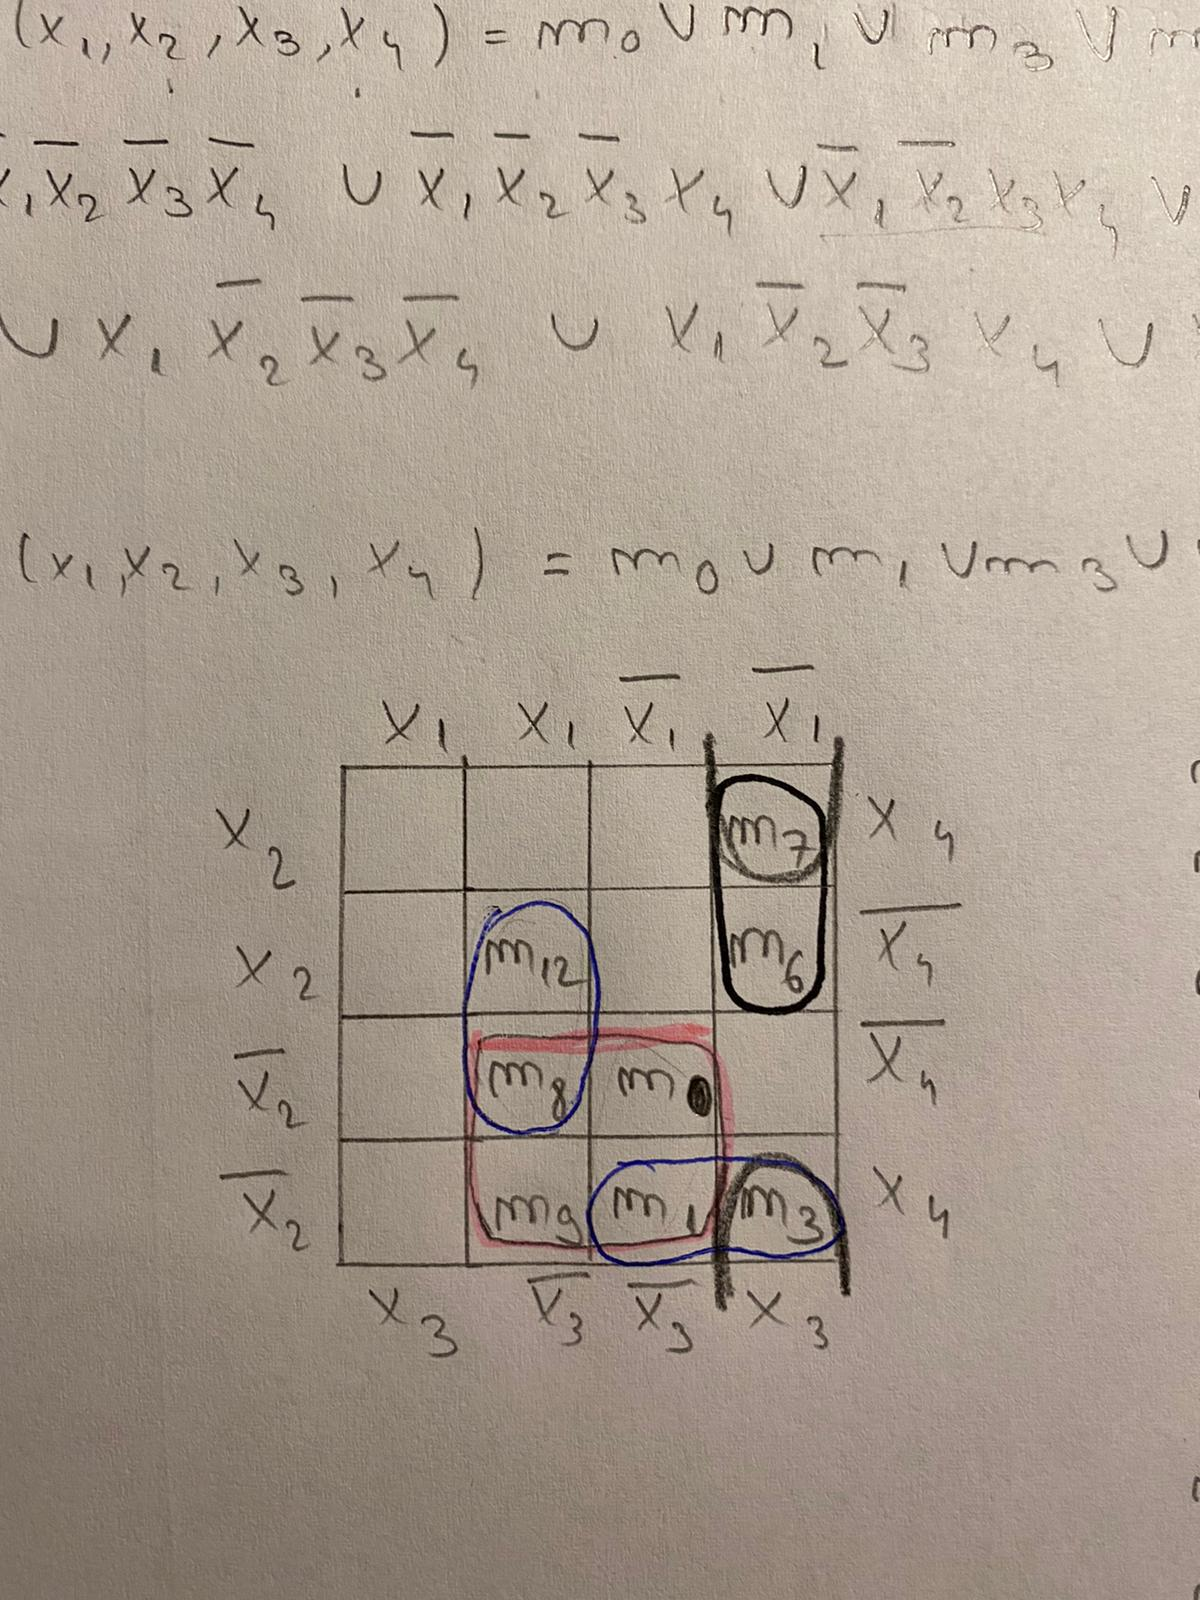 (x₁, x₂, x₃, x₄) = m₀ ∪ m₁ ∪ m₃ ∪ m
x̅₁ x̅₂ x̅₃ x̅₄ ∪ x̅₁ x̅₂ x̅₃ x₄ ∪ x̅₁ x̅₂ x₃ x₄ ∪
∪ x₁ x̅₂ x̅₃ x̅₄ ∪ x₁ x̅₂ x̅₃ x₄ ∪
(x₁, x₂, x₃, x₄) = m₀ ∪ m₁ ∪ m₃ ∪
x₁ x₁ x̅₁ x̅₁
x₂ m₇ x₄
x₂ m₁₂ m₆ x̅₄
x̅₂ m₈ m₀ x̅₄
x̅₂ m₉ m₁ m₃ x₄
x₃ x̅₃ x̅₃ x₃